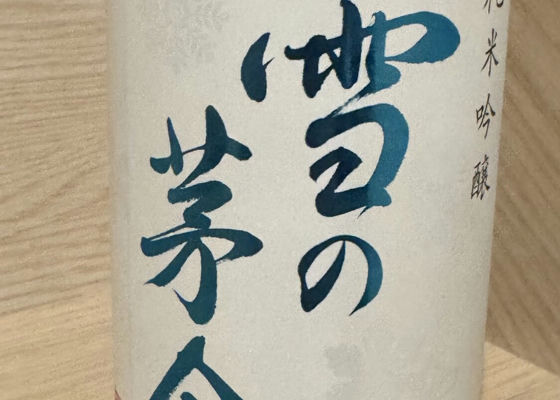 純米吟醸
雪の
茅舎